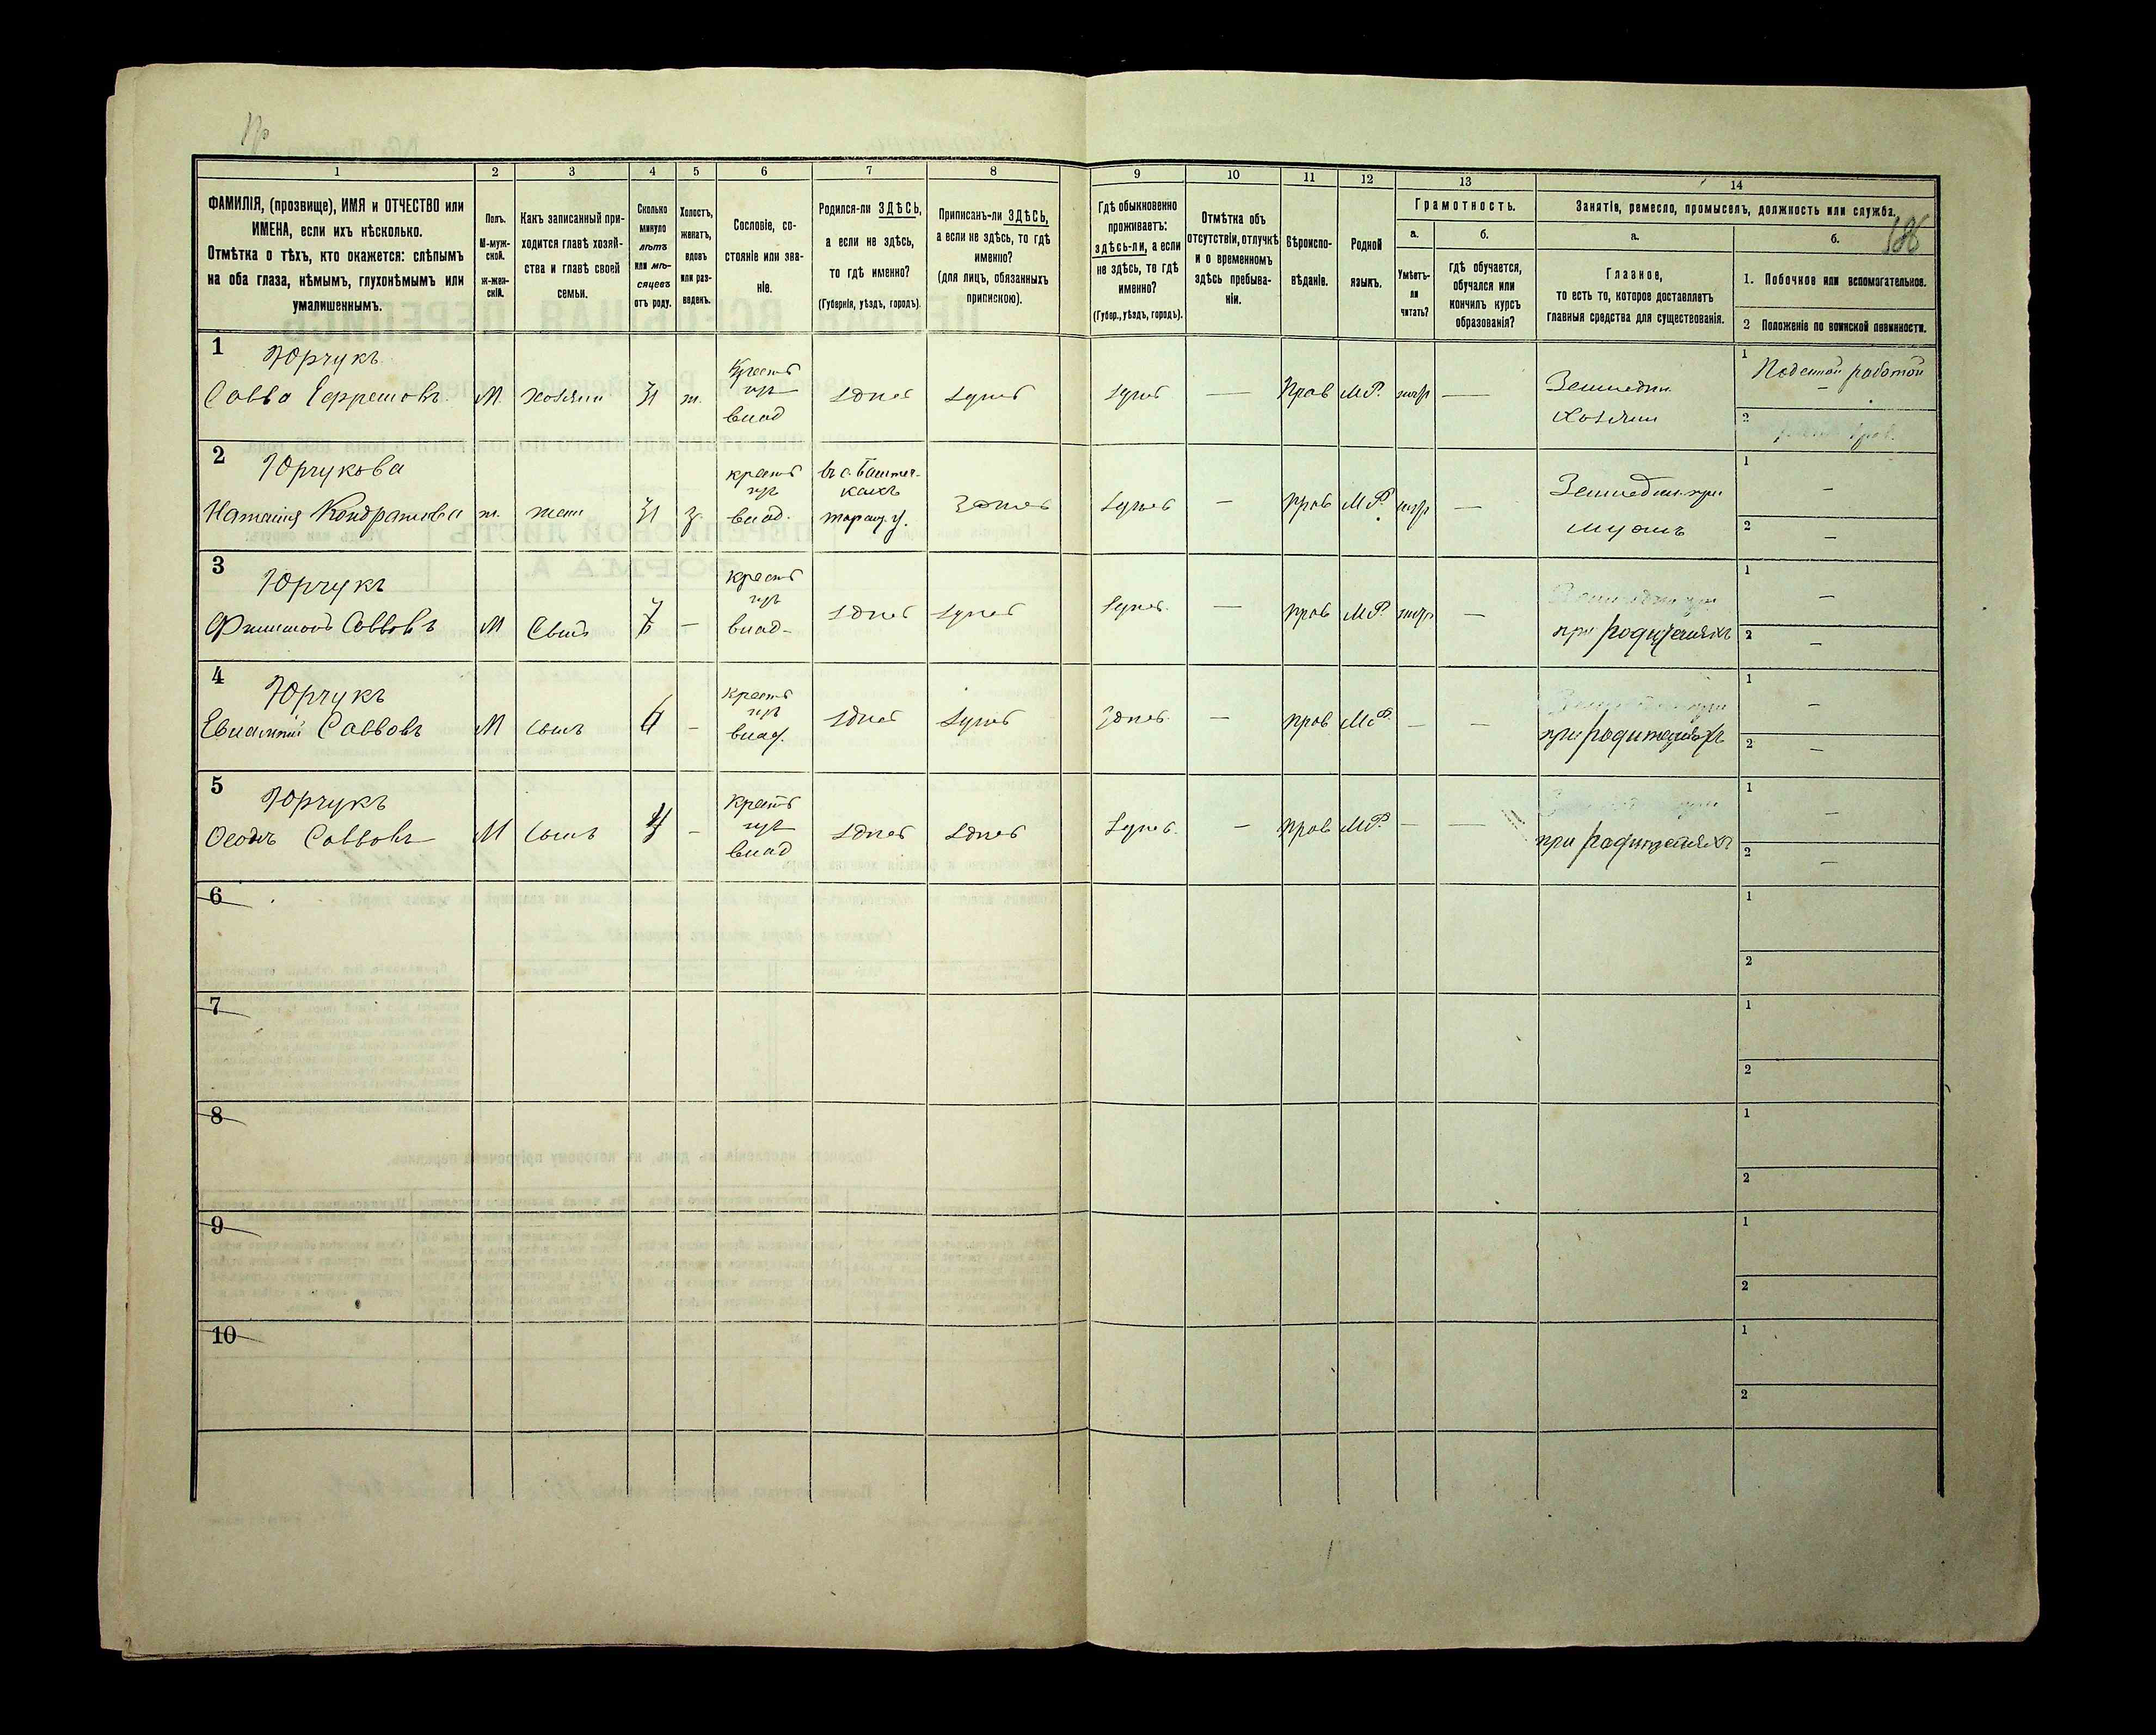 1
2
3
4
5
6
7
8
9
10
11
12
13
14
ФАМИЛІЯ, (прозвище), ИМЯ и ОТЧЕСТВО или
ИМЕНА, если ихъ нѣсколько.
Отмѣтка о тѣхъ, кто окажется: слѣпымъ
на оба глаза, нѣмымъ, глухонѣмымъ или
умалишеннымъ.
Полъ.
М-муж-
ской.
ж-жен-
скій.
Какъ записанный при-
ходится главѣ хозяй-
ства и главѣ своей
семьи.
Сколько
минуло
лѣтъ
или мѣ-
сяцевъ
отъ роду.
Холостъ,
женатъ,
вдовъ
или раз-
веденъ.
Сословіе, со-
стояніе или зва-
ніе.
Родился-ли ЗДѢСЬ,
а если не здѣсь,
то гдѣ именно?
(Губернія, уѣздъ, городъ).
Приписанъ-ли ЗДѢСЬ,
а если не здѣсь, то гдѣ
именно?
(для лицъ, обязанныхъ
припискою).
Гдѣ обыкновенно
проживаетъ:
здѣсь-ли, а если
не здѣсь, то гдѣ
именно?
(Губер., уѣздъ, городъ).
Отмѣтка объ
отсутствіи, отлучкѣ
и о временномъ
здѣсь пребыва-
ніи.
Вѣроиспо-
вѣданіе.
Родной
языкъ.
Грамотность.
а.
Умѣетъ-
ли
читать?
б.
гдѣ обучается,
обучался или
кончилъ курсъ
образованія?
Занятія, ремесло, промыселъ, должность или служба.
186
а.
Главное,
то есть то, которое доставляетъ
главныя средства для существованія.
б.
1. Побочное или вспомогательное.
2 Положеніе по воинской повинности.
1
Юрчукъ
Савва Ефремовъ
М.
хозяинъ
31
ж.
Крест
влад
здѣсь
здѣсь
здѣсь
—
Прав
М.Р.
—
Земледѣл
хозяин
1
Поденной работой
2
2
Юрчукова
Наталія Кондратова
ж.
жена
31
з.
крест
влад.
здѣсь
здѣсь
—
прав
М.Р.
—
Земледѣл. при
мужѣ
1
—
2
—
3
Юрчукъ
Филимонъ Саввовъ
М
Сынъ
7
—
крест
влад-
здѣсь
здѣсь
здѣсь.
—
прав
М.Р.
—
при родителяхъ
1
—
2
—
4
Юрчукъ
Евлампій Саввовъ
М
сынъ
6
—
крест
влад.
здѣсь
здѣсь
здѣсь.
—
прав
М.Р.
—
—
при родителяхъ
1
—
2
—
5
Юрчукъ
Саввовъ
М
сынъ
—
крест
влад
здѣсь
здѣсь
здѣсь.
—
прав
М.Р.
—
—
при родителяхъ
1
—
2
—
6
1
2
7
1
2
8
1
2
9
1
2
10
1
2